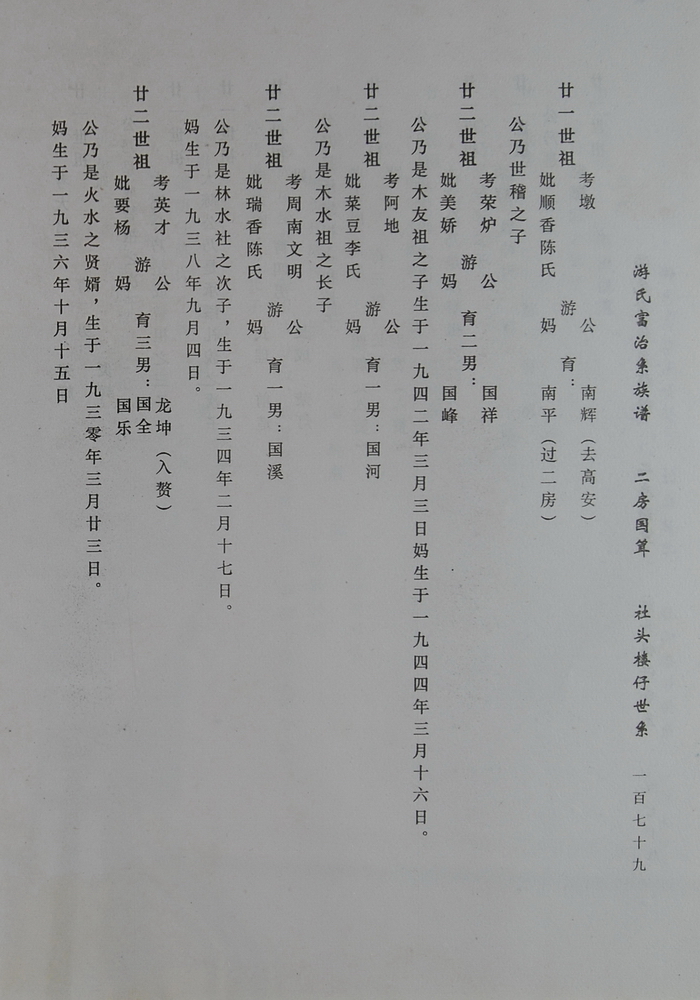 游氏富治系族谱 二房国算 社头楼仔世系 一百七十九
廿一世祖
考墩 公 南辉（去高安）
游 育：
妣顺香陈氏 妈 南平（过二房）
公乃世稽之子
廿二世祖
考荣炉 公 国祥
游 育二男：
妣美娇 妈 国峰
公乃是木友祖之子生于一九四二年三月三日妈生于一九四四年三月十六日。
廿二世祖
考阿地 公
游 育一男：国河
妣菜豆李氏 妈
公乃是木水祖之长子
廿二世祖
考周南文明 公
游 育一男：国溪
妣瑞香陈氏 妈
公乃是林水社之次子，生于一九三四年二月十七日。
妈生于一九三八年九月四日。
廿二世祖
考英才 公 龙坤（入赘）
游 育三男：国全
妣要杨 妈 国乐
公乃是火水之贤婿，生于一九三零年三月廿三日。
妈生于一九三六年十月十五日